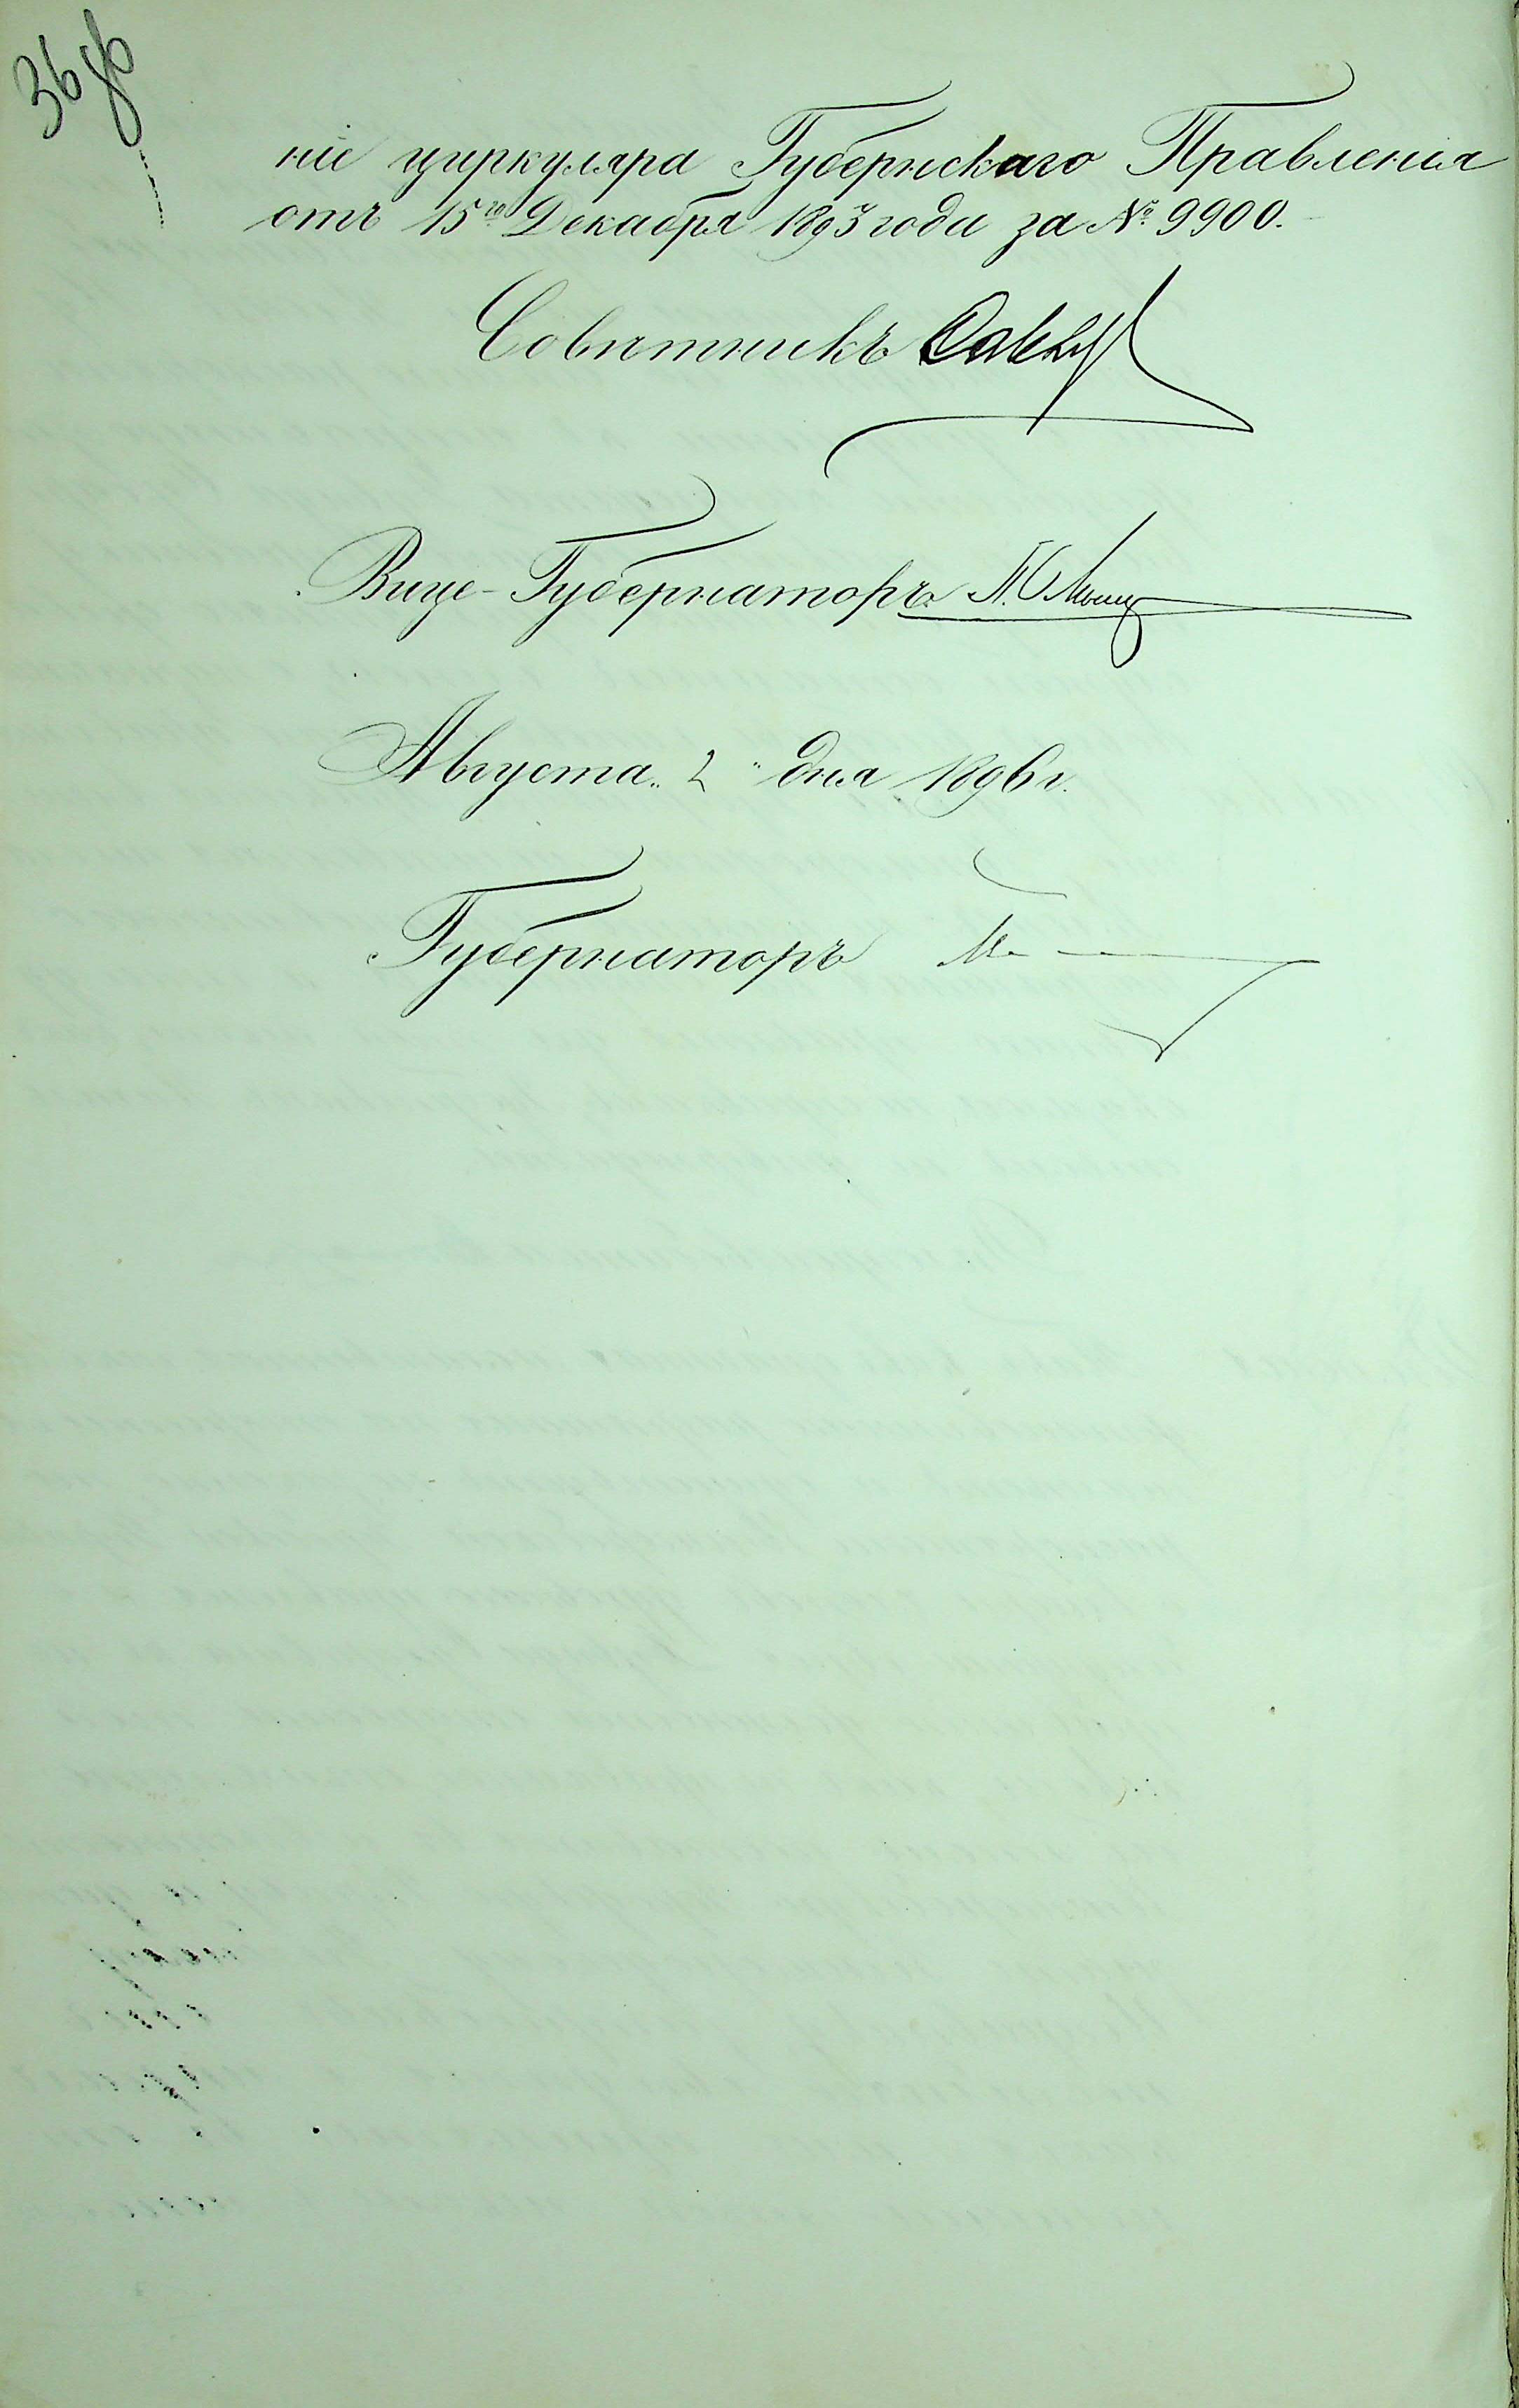 36 об
ніе циркуляра Губернскаго Правленія
отъ 15го Декабря 1893 года за № 9900.
Совѣтникъ
Вице-Губернаторъ
Августа „2" дня 1896 г.
Губернаторъ